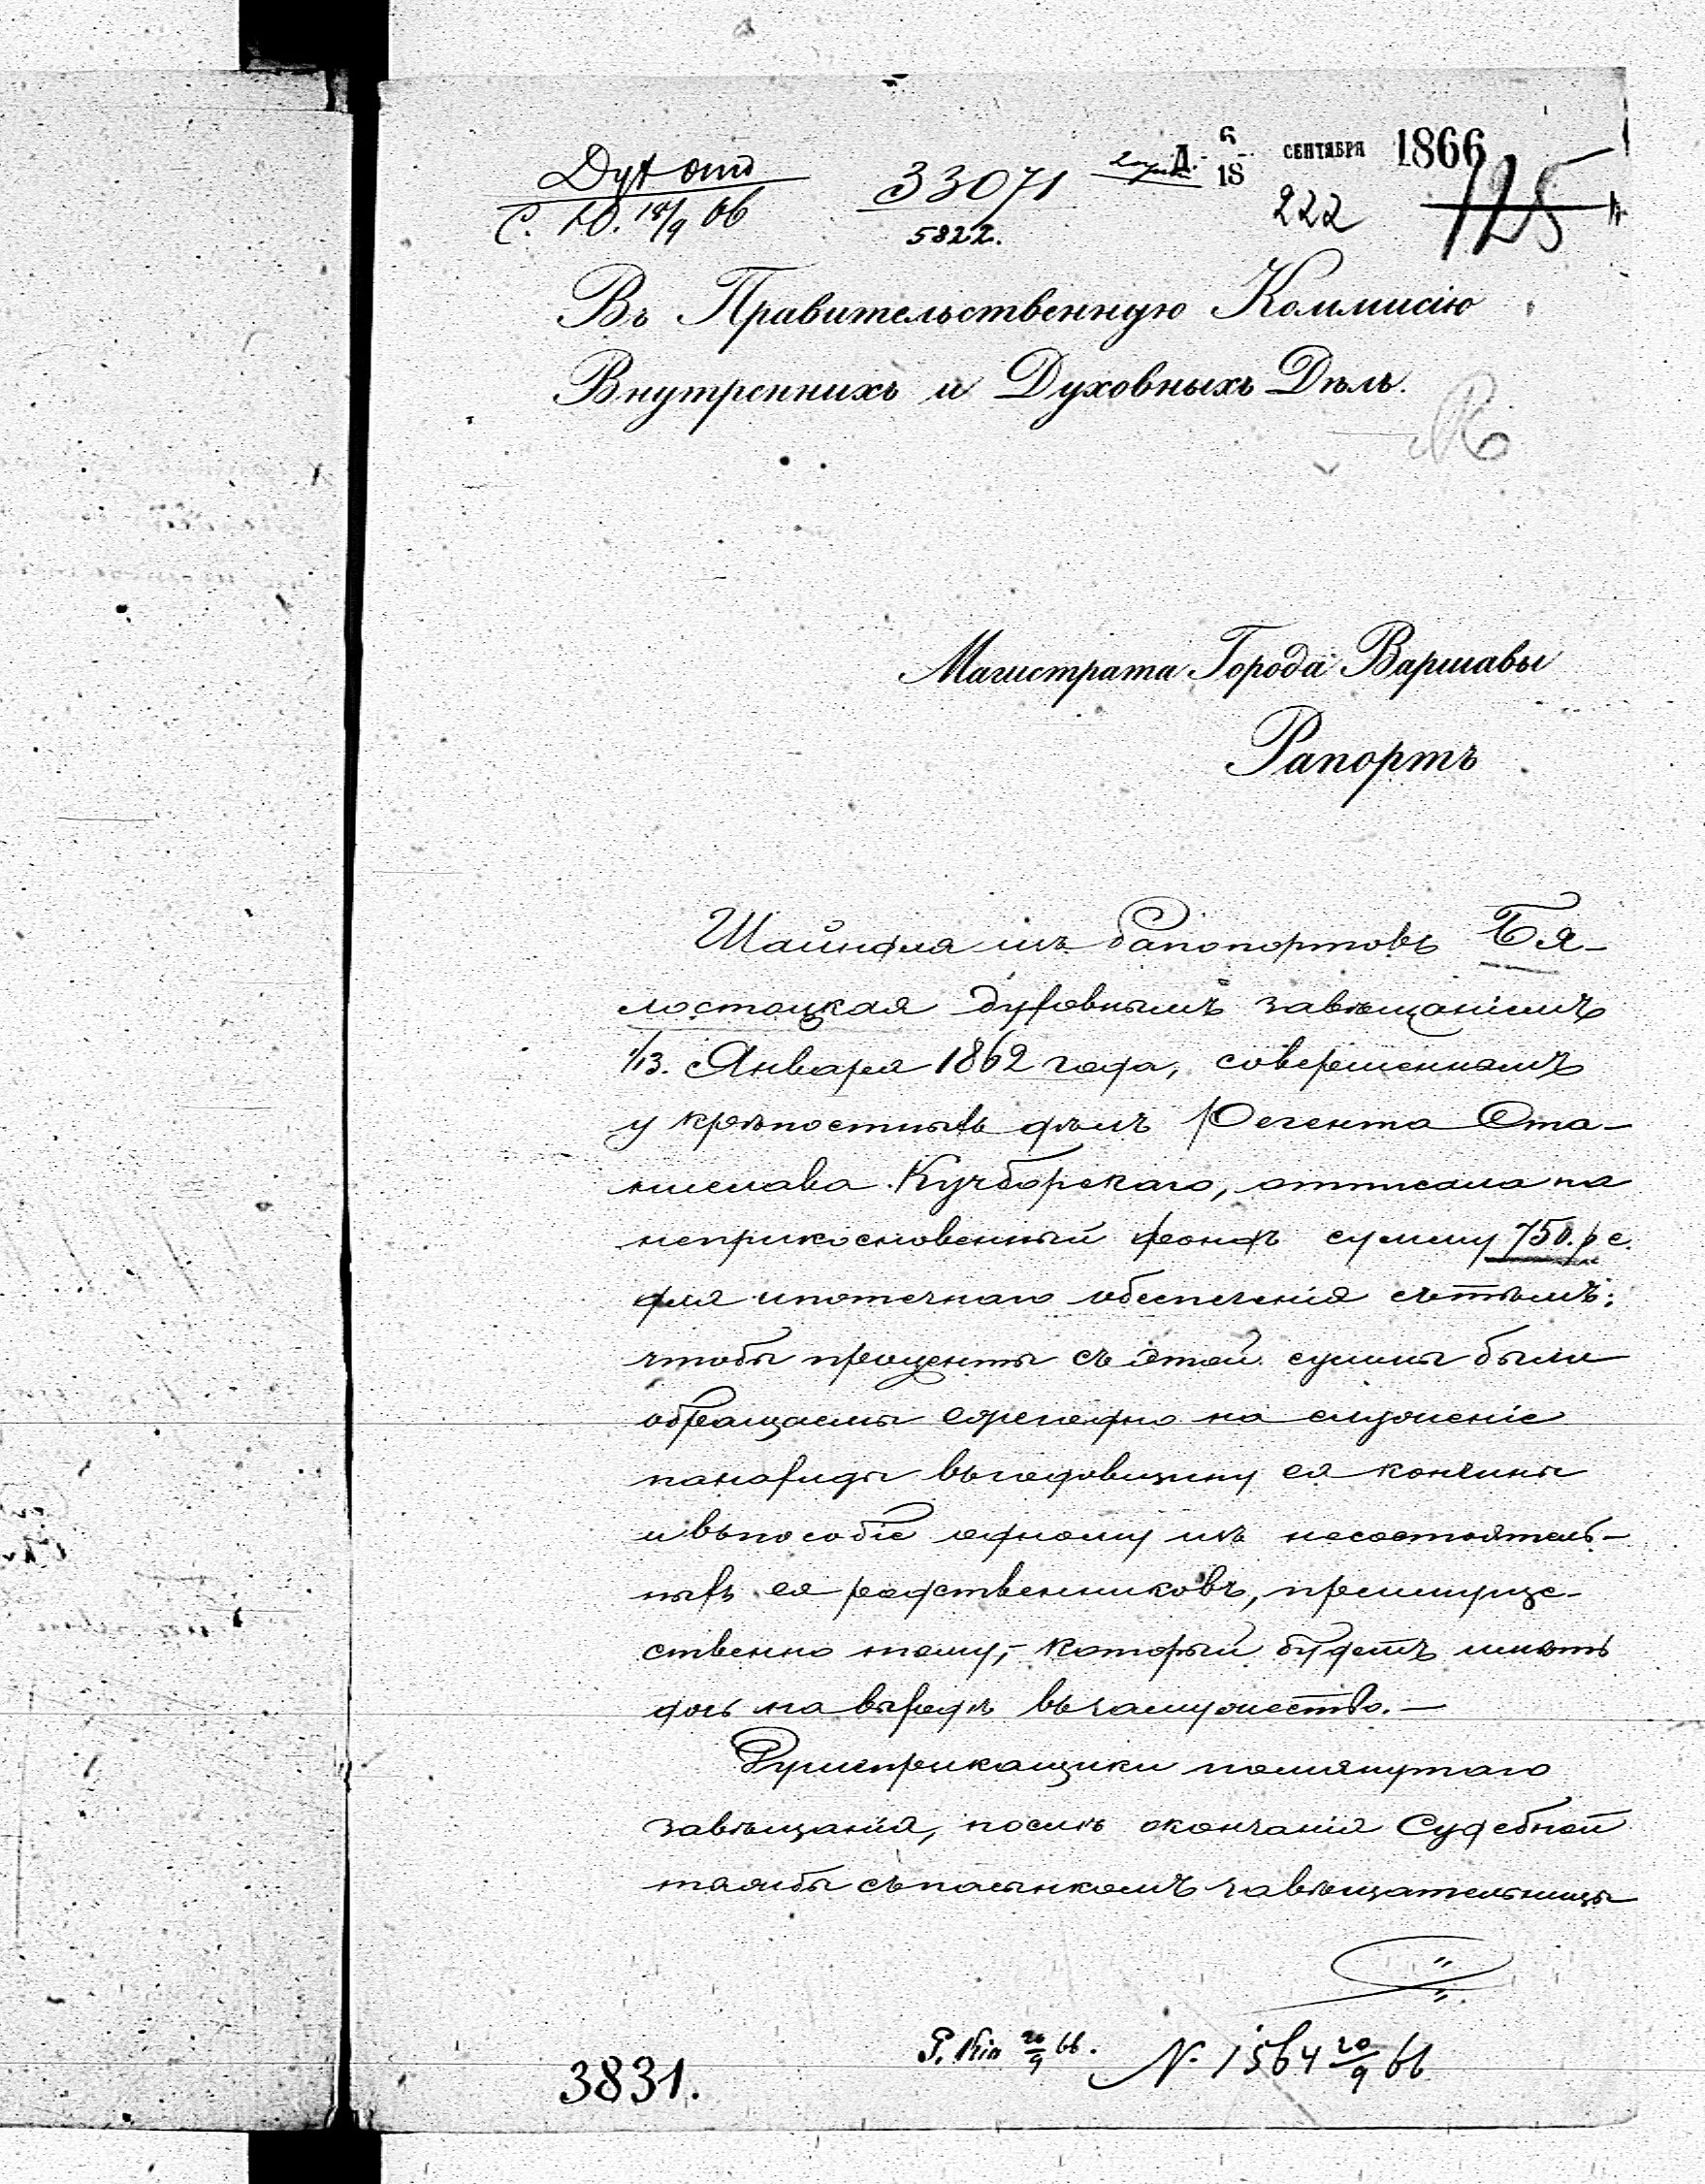 Дух отд
С. Ю. 18/9 66
33071
5822.
Д. 6/18 СЕНТЯБРЯ 1866
222 125
Въ Правительственную Коммисію
Внутреннихъ и Духовныхъ Дѣлъ.
Магистрата Города Варшавы
Рапортъ
Шайндля изъ Рапопортовъ Бя-
лостоцкая духовнымъ завѣщаніемъ
1/13. Января 1862 года, совершеннымъ
у крѣпостныхъ дѣлъ Регента Ста-
нислава Кучборскаго, отписала на
неприкосновенный фондъ сумму 750. р с.
для ипотечнаго обеспеченія съ тѣмъ:
чтобы проценты съ этой суммы были
обращаемы ежегодно на служеніе
панафиды въ годовщину ея кончины
и въ пособіе одному изъ несостоятель-
ныхъ ея родственниковъ, преимуще-
ственно тому, который будетъ имѣть
дочь на выходѣ въ замужество.—
Душеприкащики помянутаго
завѣщанія, послѣ окончанія Судебной
тяжбы съ пасынкомъ завѣщательницы
3831.
20/9 66. N. 1564 20/9 66